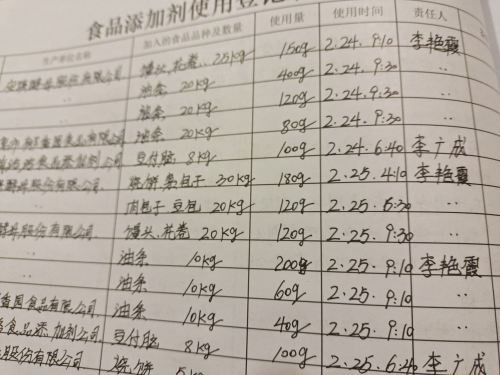 食品添加剂使用登记
生产单位名称 加入的食品品种及数量 使用量 使用时间 责任人
股份有限公司 馒头,花卷 25kg 150g 2.24.9:10 李艳霞
油条 20kg 400g 2.24.9:30 ··
油条 20kg 120g 2.24.9:30 ··
油条 20kg 80g 2.24.9:30 ··
食品添加剂公司 豆付脑 8kg 100g 2.24.6:40 李广成
股份有限公司 烧饼 包子 30kg 180g 2.25.4:10 李艳霞
肉包子 豆包 20kg 120g 2.25.6:30 ··
股份有限公司 馒头,花卷 20kg 120g 2.25.9:30 ··
油条 10kg 200g 2.25.9:10 李艳霞
油条 10kg 60g 2.25.9:10 ··
食品有限公司 油条 10kg 40g 2.25.9:10 ··
食品添加剂公司 豆付脑 8kg 100g 2.25.6:40 李广成
股份有限公司 烧饼 5kg